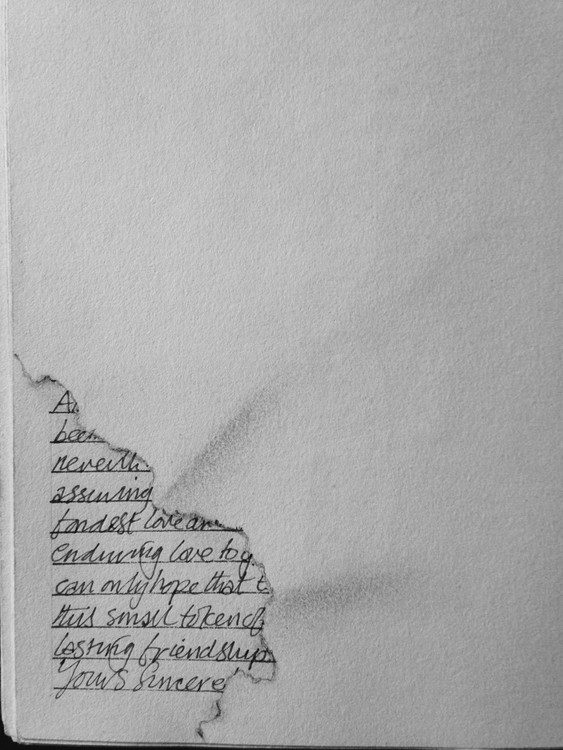 A
been
neverth
assuring
fondest love an
enduring love to y
can only hope that t
this small token of
lasting friendship
Yours Sincere